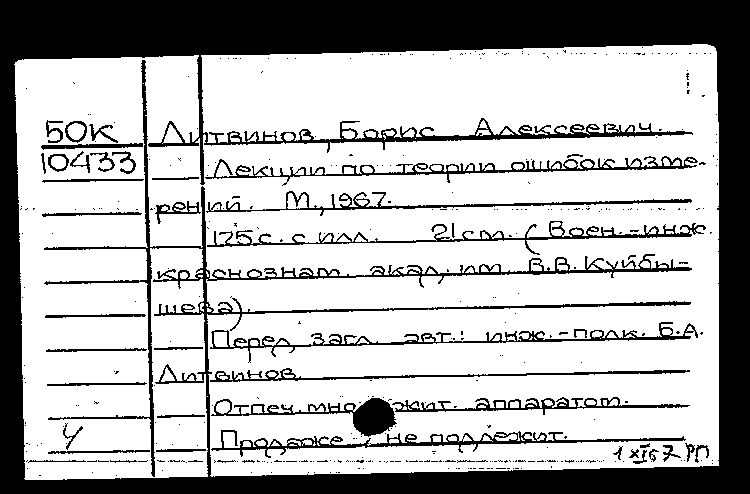 50К Литвинов, Борис Алексеевич.
10433 Лекции по теории ошибок изме-
рений. М., 1967.
125 с. с илл. 21 см. (Воен.-инж.
краснознам. акад. им. В.В. Куйбы-
шева).
Перед загл. авт.: инж.-полк. Б.А.
Литвинов.
Отпеч. множит. аппаратом.
Продаже не подлежит.
1 XI 67 РП